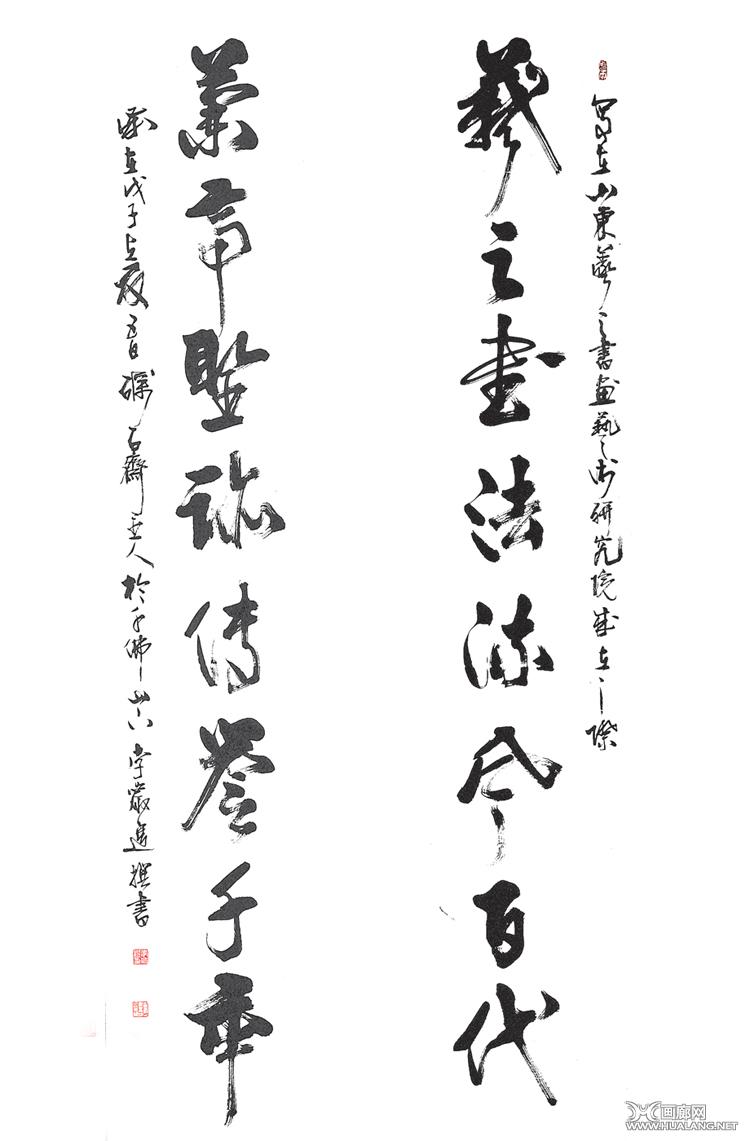 寫在山東羲之書畫藝術研究院成立之際
羲之書法流今百代
蘭亭聖跡傳譽千年
歲在戊子立夏石齋主人於千佛山下李嚴進撰書
画廊网
WWW.HUALANG.NET